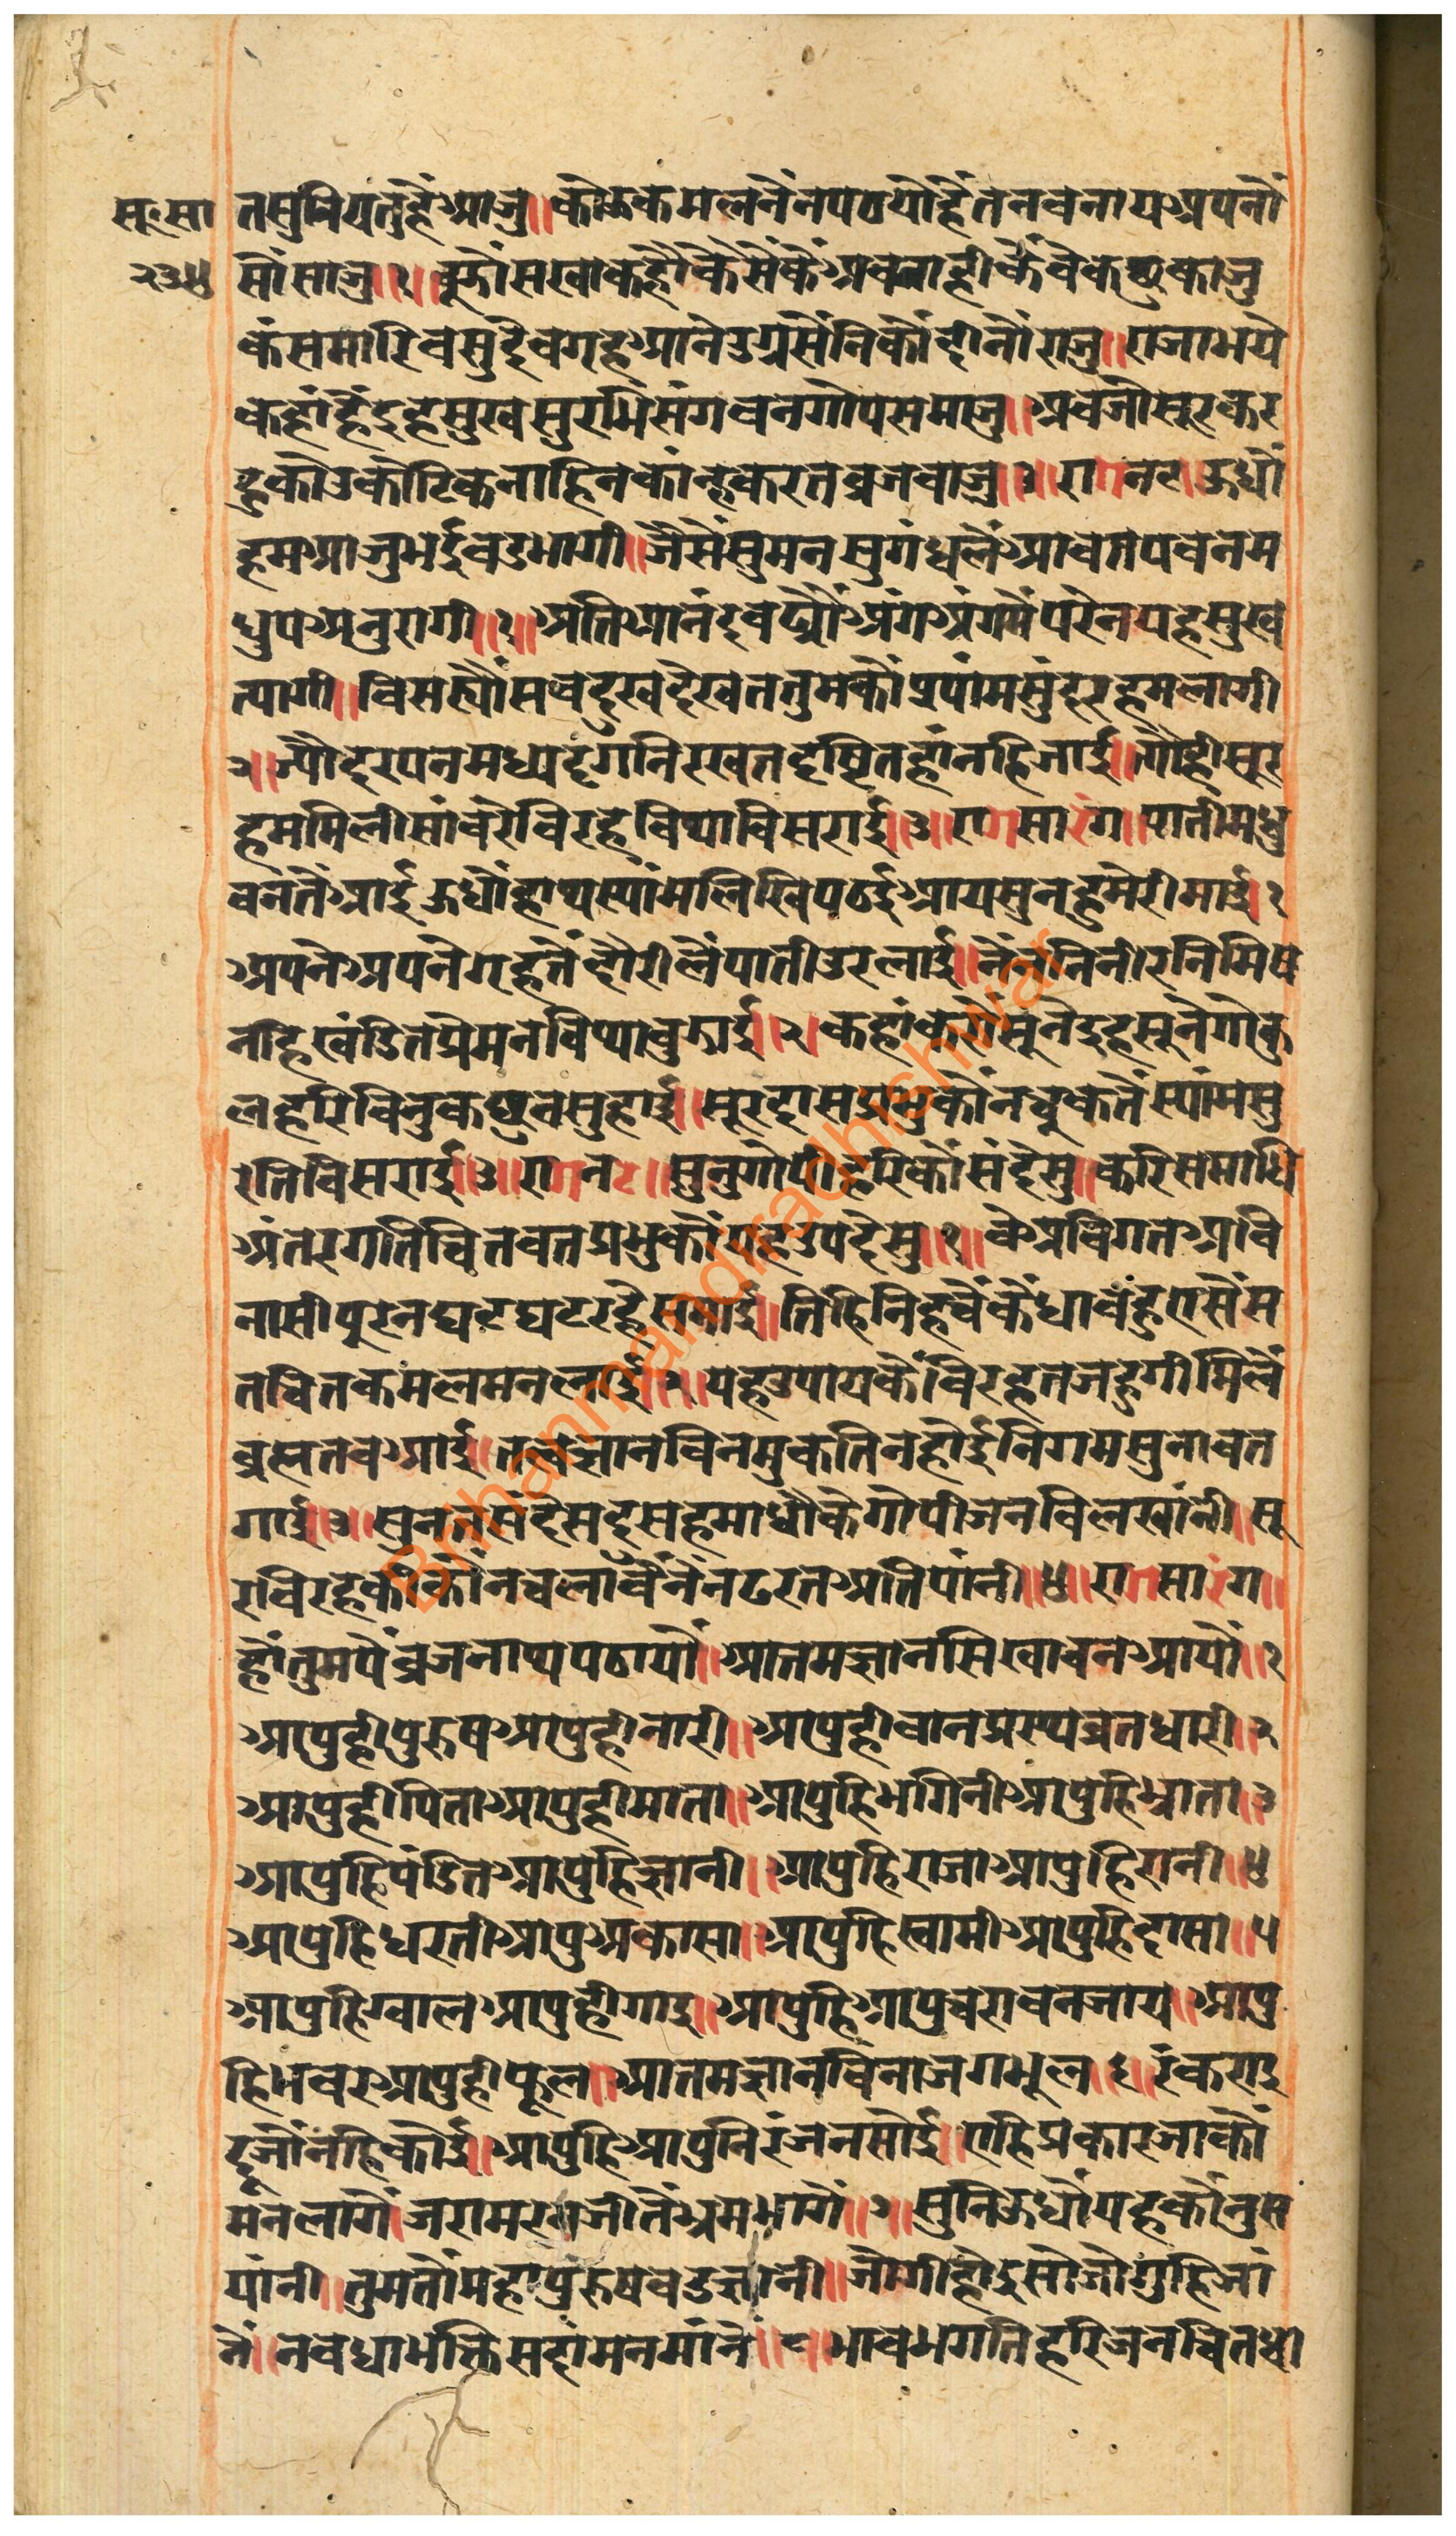 सू॰सा
२३४
तसुनियतुहैंआजु॥कोऊकमलनैंनपठयोहैंतनवनायअपनों
सौंसाजु॥१॥बूझौंसखाकहौकैसैंकैंअबनाहीकैंवेकछुकाजु
कंसमारिवसुदेवगृहआनेउग्रसैंनिकौंदीनौंराजु॥राजाभये
कहांहैंइहसुखसुरभिसंगवनगोपसमाजु॥अबजोसूरकर
हुकोउकोटिकनाहिनकांन्हकरतव्रजवाजु॥२॥रागनट॥ऊधौं
हमआजुभईवडभागी॥जैसैंसुमनसुगंधलैंआवतपवनम
धुपअनुरागी॥१॥अतिआनंदबढ्यौंअंगअंगमैंपरेनयहसुख
त्यागी॥बिसर्‍यौंसबदुखदेखततुमकौंश्यांमसुंदरहमलागी
२॥ज्यौदरपनमध्यदृगनिरखतदृष्टितहांनहिजाई॥त्यौहीसूर
हममिलीसांवरेविरहेबिथाबिसराई॥३॥रागसारंग॥पातीमधु
वनतैंआईऊधौंहाथस्यांमलिखिपठईआयसुनहुमेरीमाई॥१
अपनेअपनेगृहतैंदौरीलैंपातीउरलाई॥नैंननिनीरनिमिष
नहिखंडितप्रेमनबिथाबुझाई॥२॥कहांकरौंसूनेइहसूनेगोकु
लहरिबिनुकछुनसुहाई॥सूरदासप्रभुकौंनचूकतैंस्यांमसु
रतिबिसराई॥३॥रागनट॥सुनुगोपीहरिकौंसंदेसु॥करिसमाधि
अंतरगतिचितवतप्रभुकौंयहउपदेसु॥१॥वेअबिगतअबि
नासीपूरनघटघटरहैसमाई॥तिहिनिहचैंकैंधावंहुएसैंम
तचितकमलमनलाई॥२॥यहउपायकैंबिरहतजहुगीमिलैं
ब्रह्मतबआई॥तत्वज्ञानबिनमुकतिनहोईनिगमसुनावत
गाई॥३॥सुनतसंदेसदुसहमाधौंकेगोपीजनबिलखांनी॥सू
रबिरहकीकौंनचलावैंनैंनढरतअतिपांनी॥४॥रागसारंग॥
हौंतुमपैंब्रजनाथपठायौ॥आतमज्ञानसिखावनआयौ॥१
आपुहीपुरुषआपुहीनारी॥आपुहीवानप्रस्थव्रतधारी॥२
आपुहीपिताआपुहीमाता॥आपुहिभगिनीआपुहिभ्राता॥३
आपुहिपंडितआपुहिज्ञानी॥आपुहिराजाआपुहिरानी॥४
आपुहिधरतीआपुअकासा॥आपुहिस्वामीआपुहिदासा॥५
आपुहिग्वालआपुहीगाइ॥आपुहिआपुचरावनजाय॥आपु
हिभवरुआपुहीफूल॥आतमज्ञानबिनाजगभूल॥६॥रंकराइ
दूजोंनहिकोई॥आपुहिआपुनिरंजनसोई॥एहिप्रकारजाकौं
मनलागैं॥जरामरनजीतैंभ्रमभागैं॥७॥सुनिऊधौंयहकौंनुस
यांनी॥तुमतौंमहापुरुषबडज्ञांनी॥जोगीहोइसोजोगुहिजां
नैं॥नवधाभक्तिसदांमनमांनैं॥८॥भावभगतिहरिजनचितधा